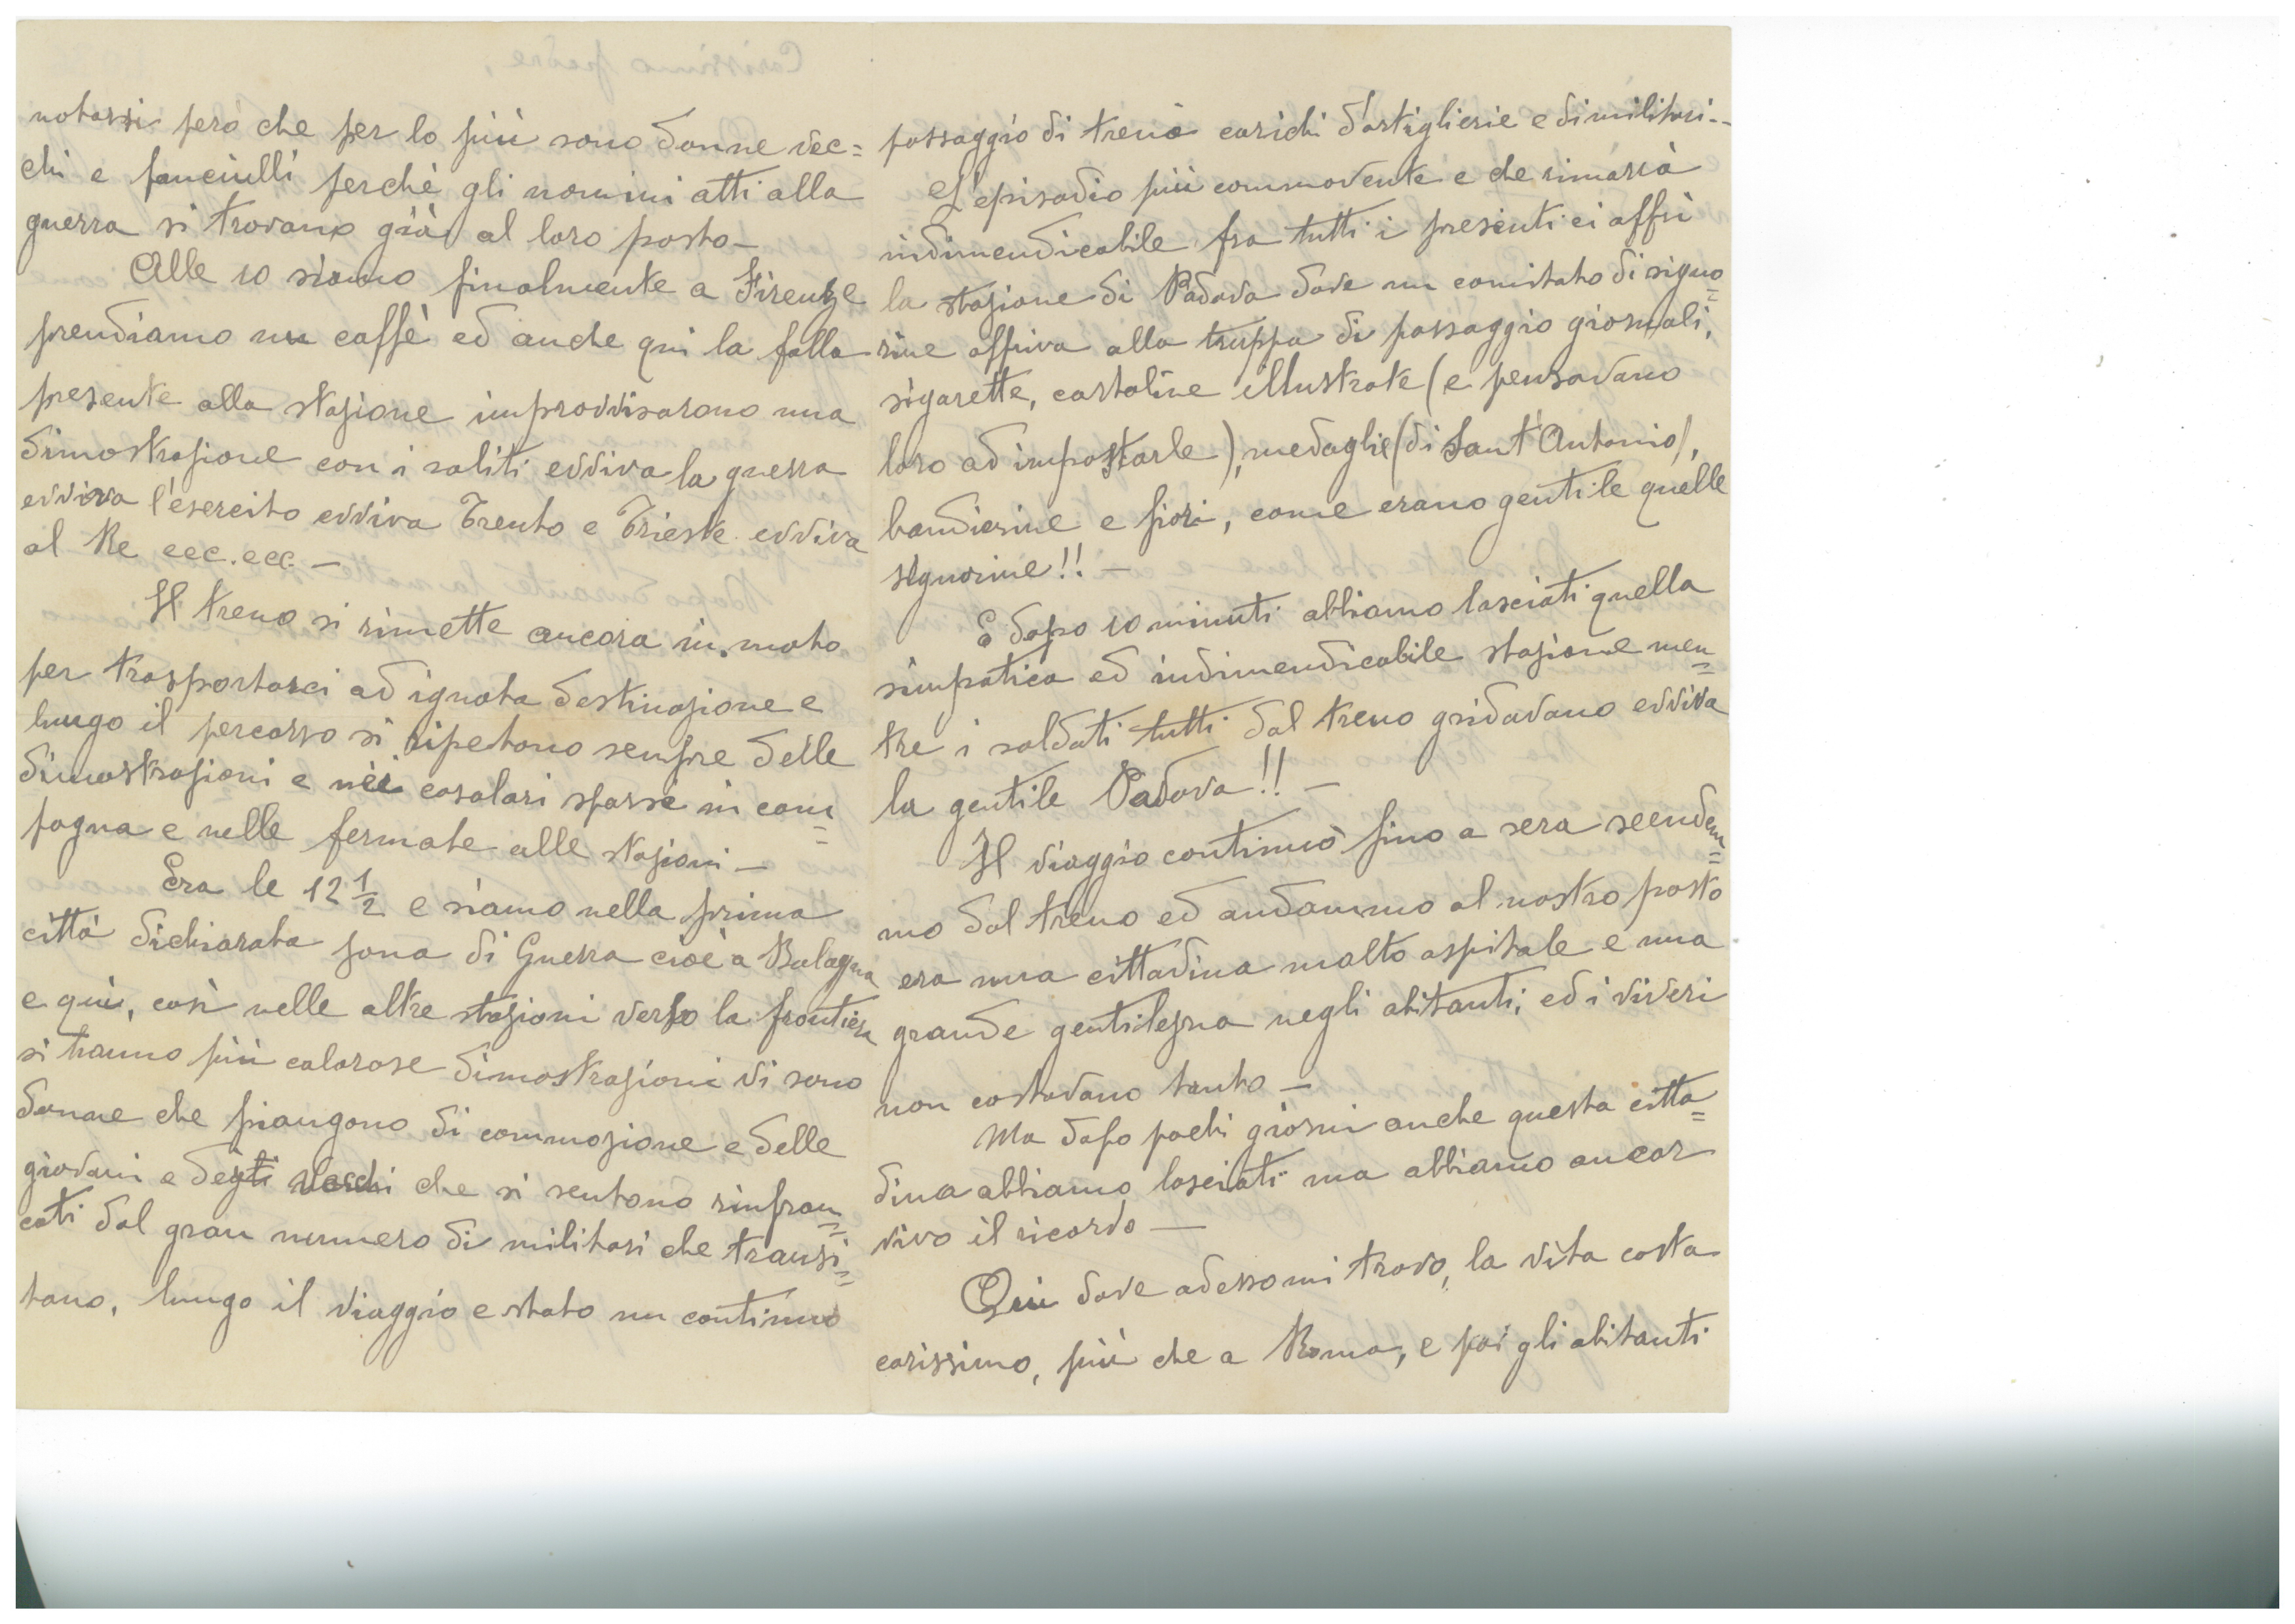 notarsi però che per lo più sono donne vec=
chi e fanciulli perchè gli uomini atti alla
guerra si trovano già al loro posto-
Alle 10 siamo finalmente a Firenze
prendiamo un caffè ed anche qui la folla
presente alla stazione improvvisarono una
dimostrazione con i soliti evviva la guerra
evviva l'esercito evviva Trento e Trieste evviva
al Re ecc. ecc. -
Il treno si rimette ancora in moto
per trasportarci ad ignota destinazione e
lungo il percorso si ripetono sempre delle
dimostrazioni e nei casolari sparsi in cam=
pagna e nelle fermate alle stazioni -
Era le 12 1/2 e siamo nella prima
città dichiarata zona di Guerra cioè a Bologna
e qui, così nelle altre stazioni verso la frontiera
si hanno più calorose dimostrazioni vi sono
donne che piangono di commozione e delle
giovani e degli vecchi che si sentono rinfran=
cati dal gran numero di militari che transi=
tano, lungo il viaggio e stato un continuo
passaggio di treni carichi d'artiglierie e di militari--
L'episodio più commovente e che rimarrà
indimendicabile fra tutti i presenti ci offrì
la stazione di Padova dove un comitato di signo=
rine offriva alla truppa di passaggio giornali,
sigarette, cartoline illustrate (e pensavano
loro ad impostarle), medaglie (di Sant'Antonio),
bandierine e fiori, come erano gentile quelle
signorine!! -
E dopo 10 minuti abbiamo lasciati quella
simpatica ed indimendicabile stazione men=
tre i soldati tutti dal treno gridavano evviva
la gentile Padova!! -
Il viaggio continuò fino a sera scendem=
mo dal treno ed andammo al nostro posto
era una cittadina molto ospitale e una
grande gentilezza negli abitanti, ed i viveri
non costavano tanto -
Ma dopo pochi giorni anche questa citta=
dina abbiamo lasciati ma abbiamo ancor
vivo il ricordo -
Qui dove adesso mi trovo, la vita costa
carissimo, più che a Roma, e poi gli abitanti